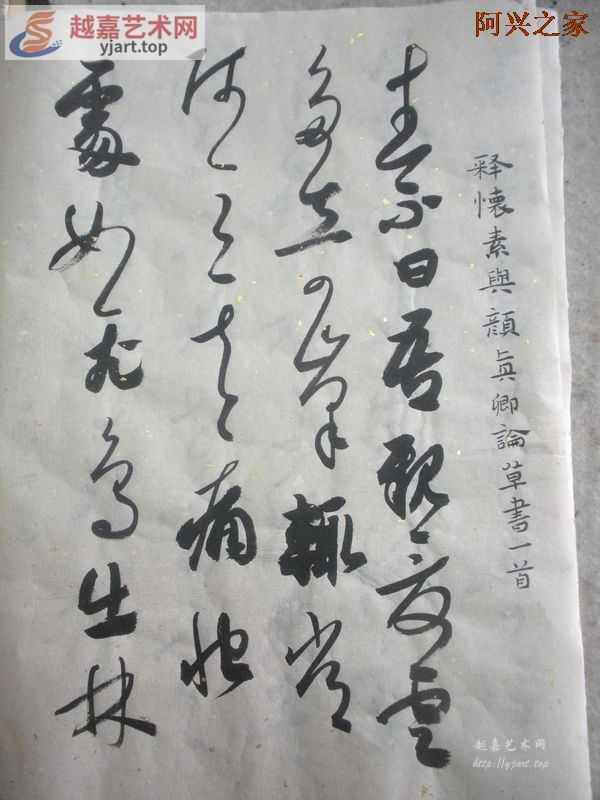 越嘉艺术网
yjart.top
阿兴之家
释懷素與顔真卿論草書一首
素曰吾觀夏雲
多奇峰輒常
師之其痛快
處如飛鳥出林
越嘉艺术网
http://yjart.top